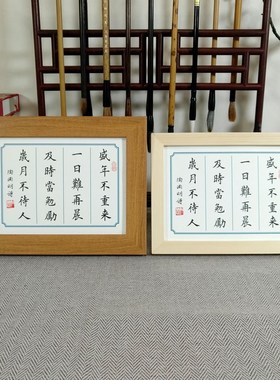 盛年不重来
一日難再晨
及時當勉勵
歲月不待人
陶淵明詩
盛年不重来
一日難再晨
及時當勉勵
歲月不待人
陶淵明詩